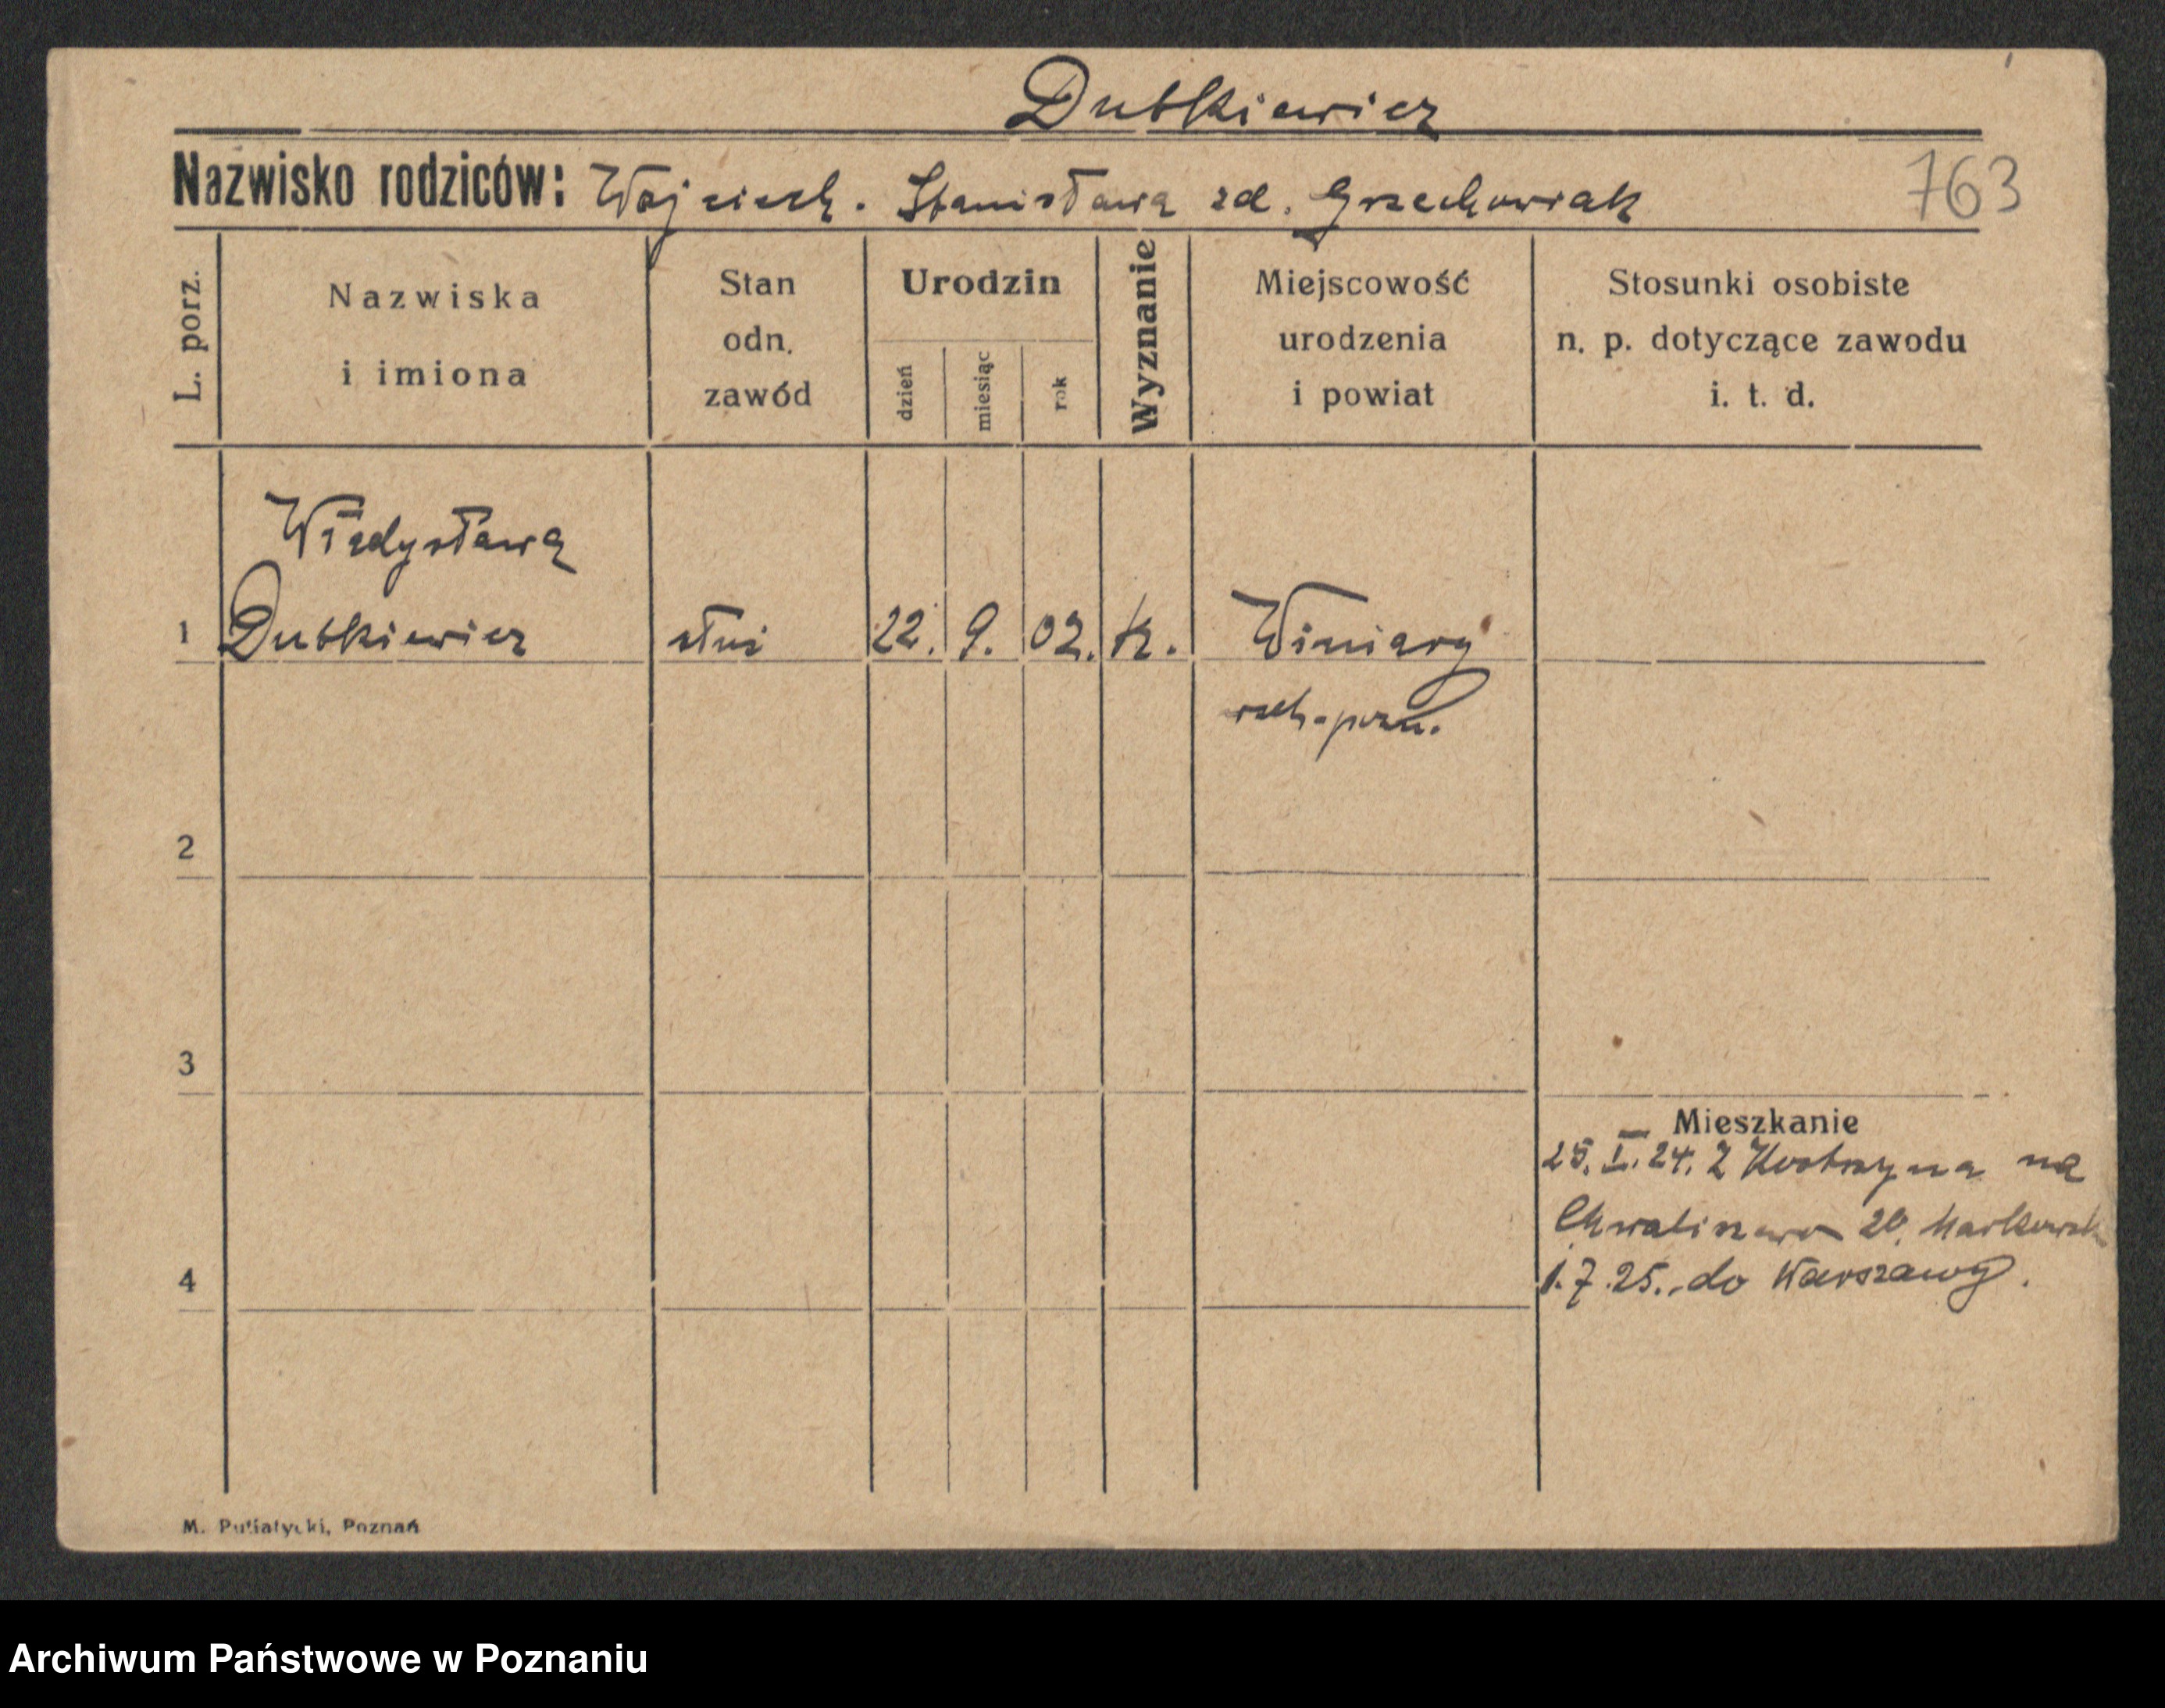 Dubkiewicz
Nazwisko rodziców: Wojciech. Stanisława zd. Grzechowiak
763
L. porz.
Nazwiska
i imiona
Stan
odn.
zawód
Urodzin
dzień
miesiąc
rok
Wyznanie
Miejscowość
urodzenia
i powiat
Stosunki osobiste
n. p. dotyczące zawodu
i. t. d.
Władysława
1 Dubkiewicz służ 22. 9. 02. k. Winiary
wsch.-pozn.
2
3
Mieszkanie
25. I. 24. Z Kostrzyna na
Chwaliszewo 20.
4
1.7.25. do Warszawy.
M. Putiatycki, Poznań
Archiwum Państwowe w Poznaniu